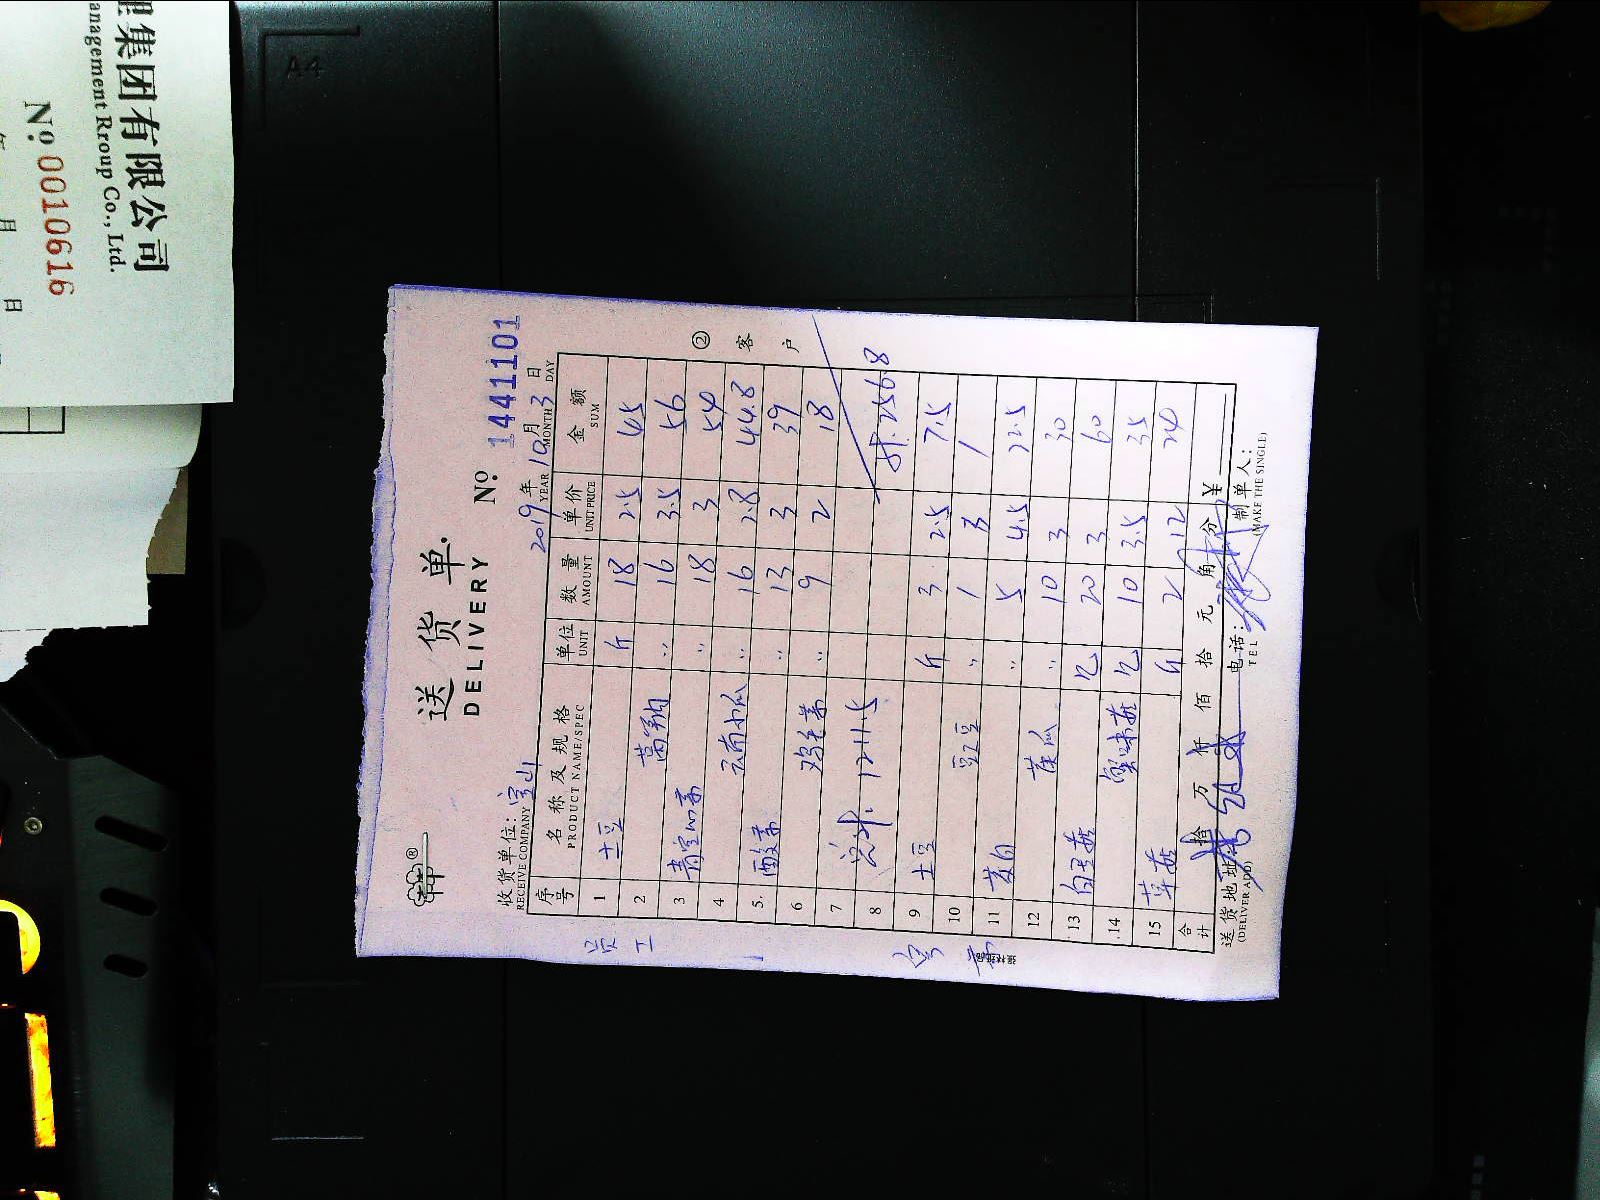 理集团有限公司
anagement Rroup Co., Ltd.
№ 0010616
年 月 日
A4
送 货 单
DELIVERY
№ 1441101
收货单位: 宝山
RECEIVE COMPANY
2019年10月3日
YEAR MONTH DAY
序号 名称及规格 单位 数量 单价 金额
PRODUCT NAME/SPEC UNIT AMOUNT UNIT PRICE SUM
1 土豆 斤 18 2.5 45
2 莴笋 〃 16 3.5 56
3 〃 18 3 54
4 云南小瓜 〃 16 2.8 44.8
5 酸菜 〃 13 3 39
6 鸡毛菜 〃 9 2 18
7
8 12.11.5 256.8
9 土豆 斤 3 2.5 7.5
10 豇豆 〃 1
11 茭白 〃 5 4.5 22.5
12 〃 10 3 30
13 白玉菇 包 20 3 60
14 蟹味菇 包 10 3.5 35
15 草菇 斤 2 12 24
合计 拾 万 仟 佰 拾 元 角 分 ¥
送货地址: 电话: 制单人:
(DELIVER ADD) TEL (MAKE THE SINGLE)
② 客户
员工